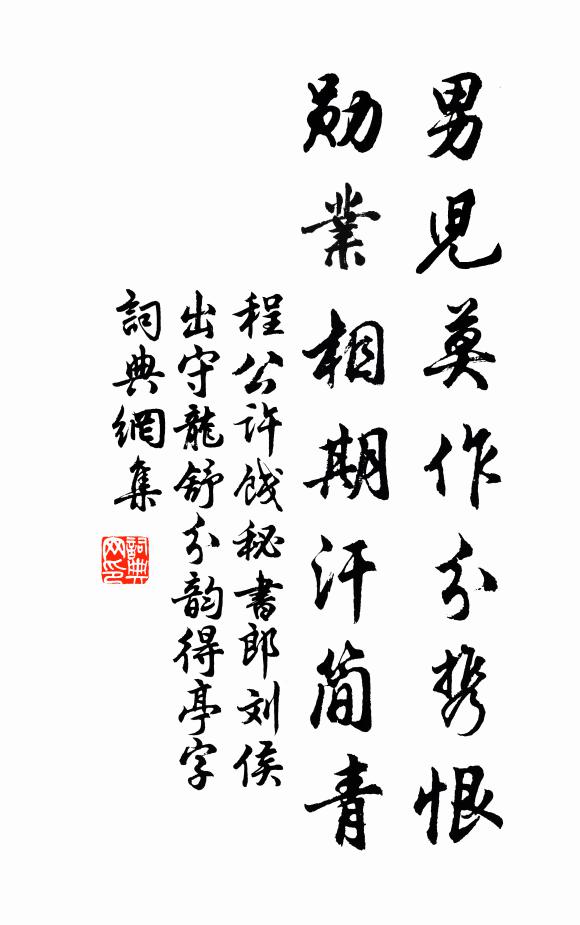 男兒莫作分携恨
勛業相期汗简青
程公许餞秘書郎刘侯
出守龍舒分韵得亭字
詞典網集
詞典網印